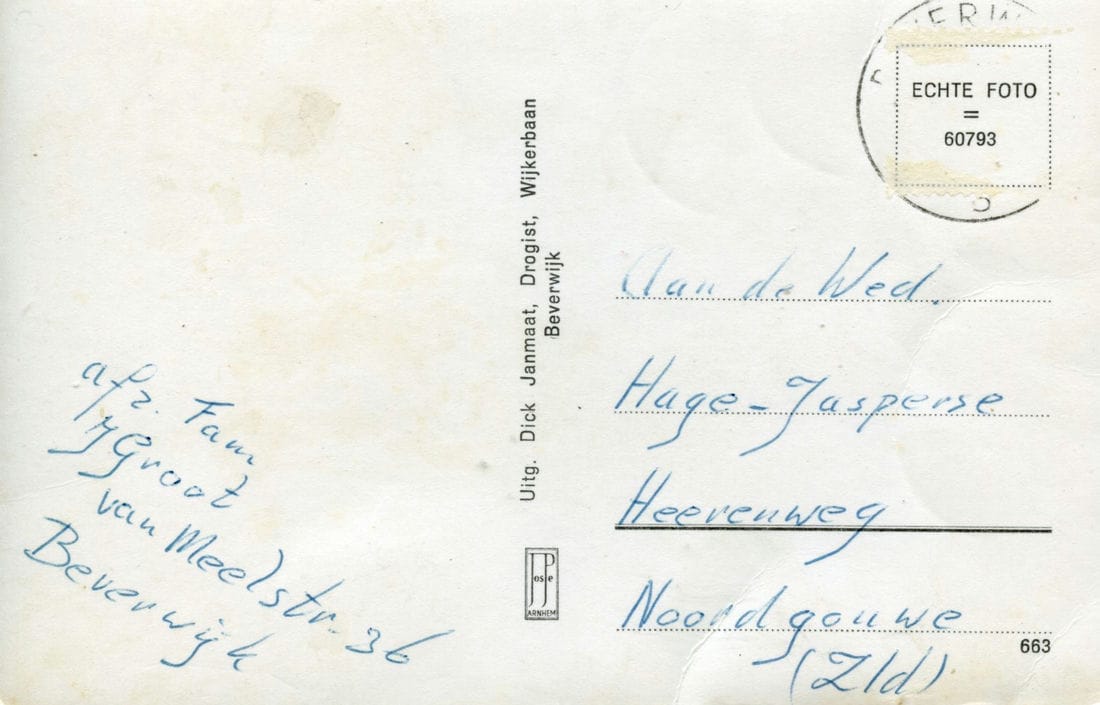 ECHTE FOTO
=
60793
Uitg. Dick Janmaat, Drogist, Wijkerbaan
Beverwijk
Aan de Wed.
Hage-Jasperse
Heerenweg
Noordgouwe
(Zld)
663
afz. Fam
Groot
van Meelstr. 36
Beverwijk
ARNHEM